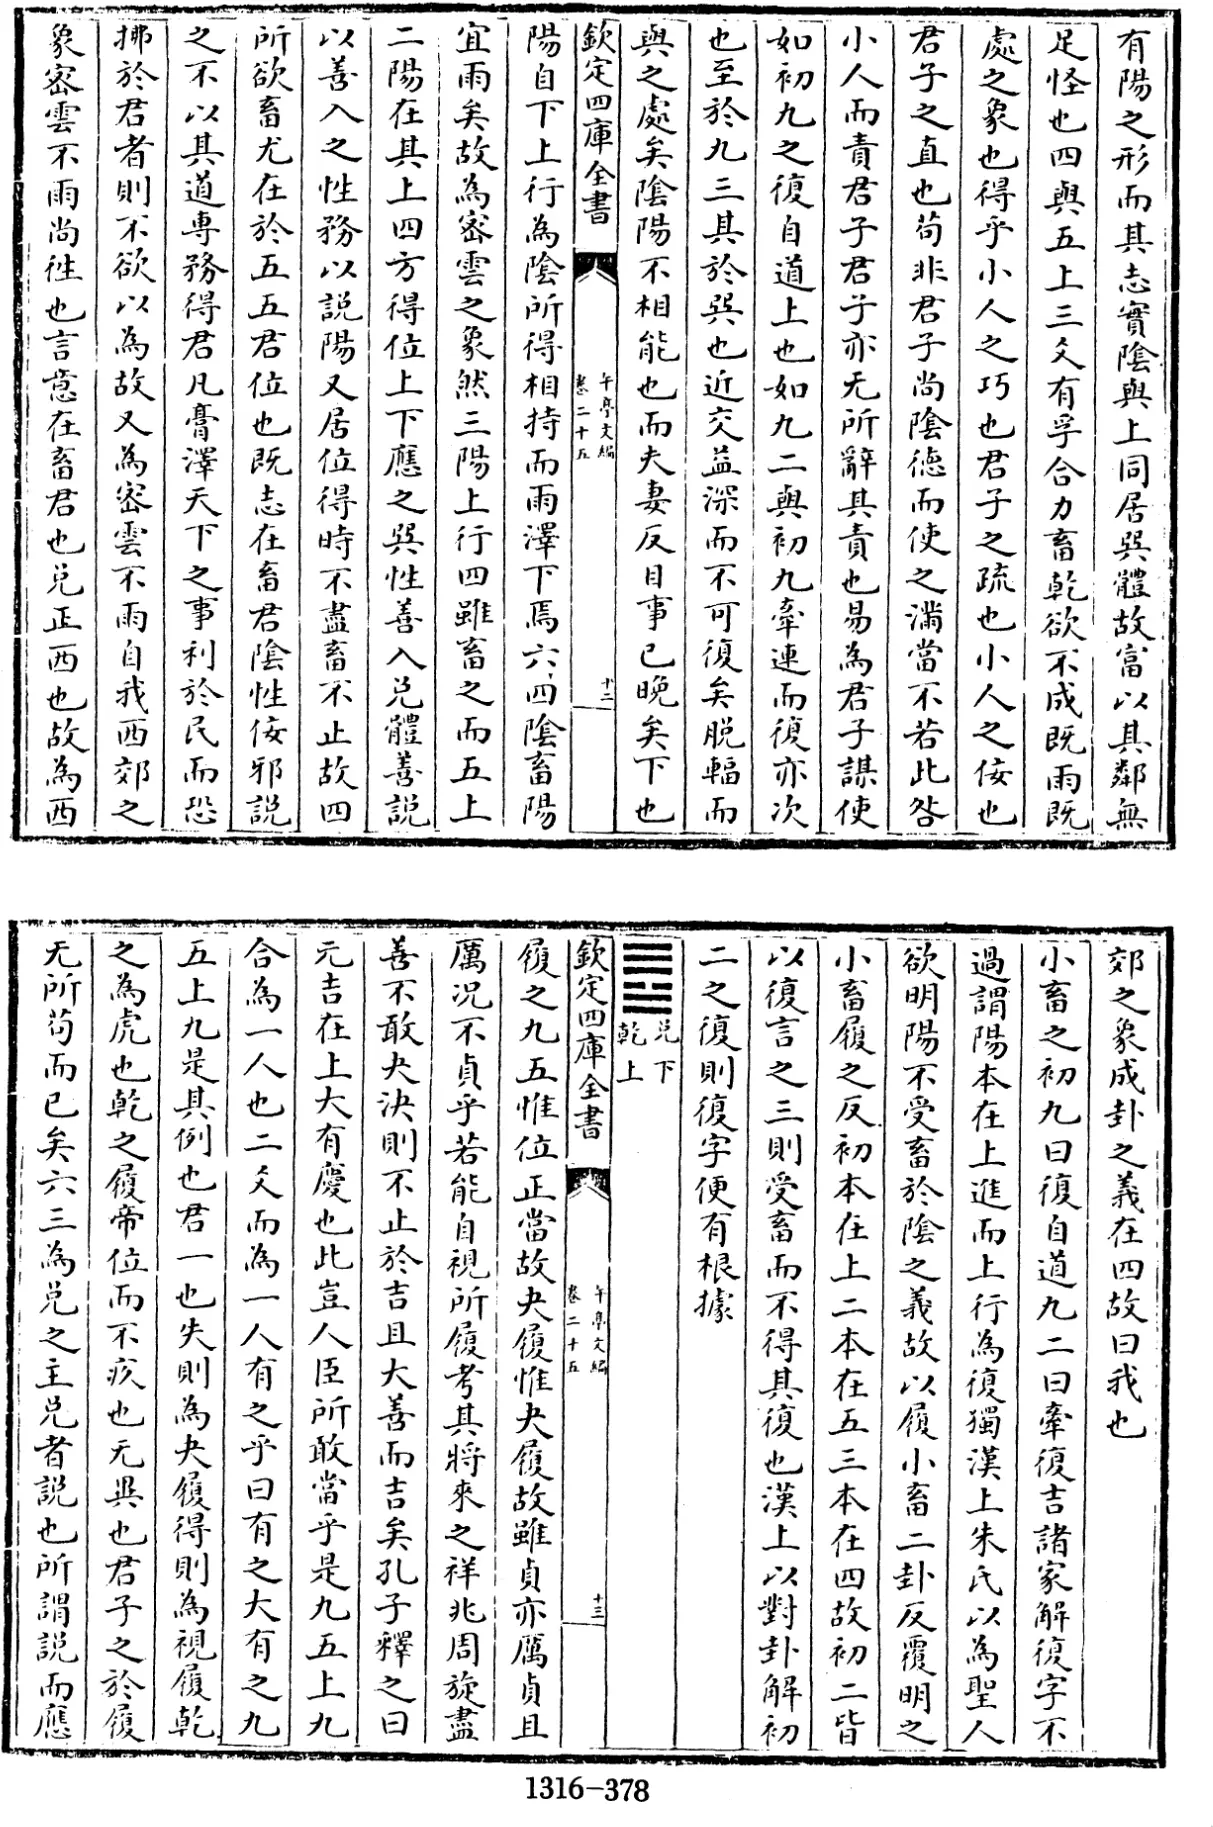 有陽之形而其志實陰與上同居巽體故富以其鄰無
足怪也四與五上三爻有孚合力畜乾欲不成既雨既
處之象也得乎小人之巧也君子之疏也小人之佞也
君子之直也苟非君子尚陰徳而使之滿當不若此咎
小人而責君子君子亦无所辭其責也易為君子謀使
如初九之復自道上也如九二與初九牽連而復亦次
也至於九三其於巽也近交益深而不可復矣脱輻而
與之處矣陰陽不相能也而夫妻反目事已晚矣下也
欽定四庫全書
午亭文編
卷二十五
十二
陽自下上行為陰所得相持而雨澤下焉六四陰畜陽
宜雨矣故為密雲之象然三陽上行四雖畜之而五上
二陽在其上四方得位上下應之巽性善入兑體善説
以善入之性務以説陽又居位得時不盡畜不止故四
所欲畜尤在於五五君位也既志在畜君陰性佞邪説
之不以其道専務得君凡膏澤天下之事利於民而恐
拂於君者則不欲以為故又為密雲不雨自我西郊之
象密雲不雨尚徃也言意在畜君也兑正西也故為西
郊之象成卦之義在四故曰我也
小畜之初九曰復自道九二曰牽復吉諸家解復字不
過謂陽本在上進而上行為復獨漢上朱氏以為聖人
欲明陽不受畜於陰之義故以履小畜二卦反覆明之
小畜履之反初本在上二本在五三本在四故初二皆
以復言之三則受畜而不得其復也漢上以對卦解初
二之復則復字便有根據
兑下
乾上
欽定四庫全書
午亭文編
卷二十五
十三
履之九五惟位正當故夬履惟夬履故雖貞亦厲貞且
厲况不貞乎若能自視所履考其將來之祥兆周旋盡
善不敢夬決則不止於吉且大善而吉矣孔子釋之曰
元吉在上大有慶也此豈人臣所敢當乎是九五上九
合為一人也二爻而為一人有之乎曰有之大有之九
五上九是其例也君一也失則為夬履得則為視履乾
之為虎也乾之履帝位而不疚也无異也君子之於履
无所苟而已矣六三為兑之主兑者説也所謂説而應
1316-378